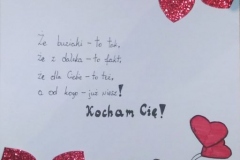 Że buziaki - to też,
że z daleka - to fakt,
że dla Ciebie - to też,
a od kogo - już wiesz!
Kocham Cię!